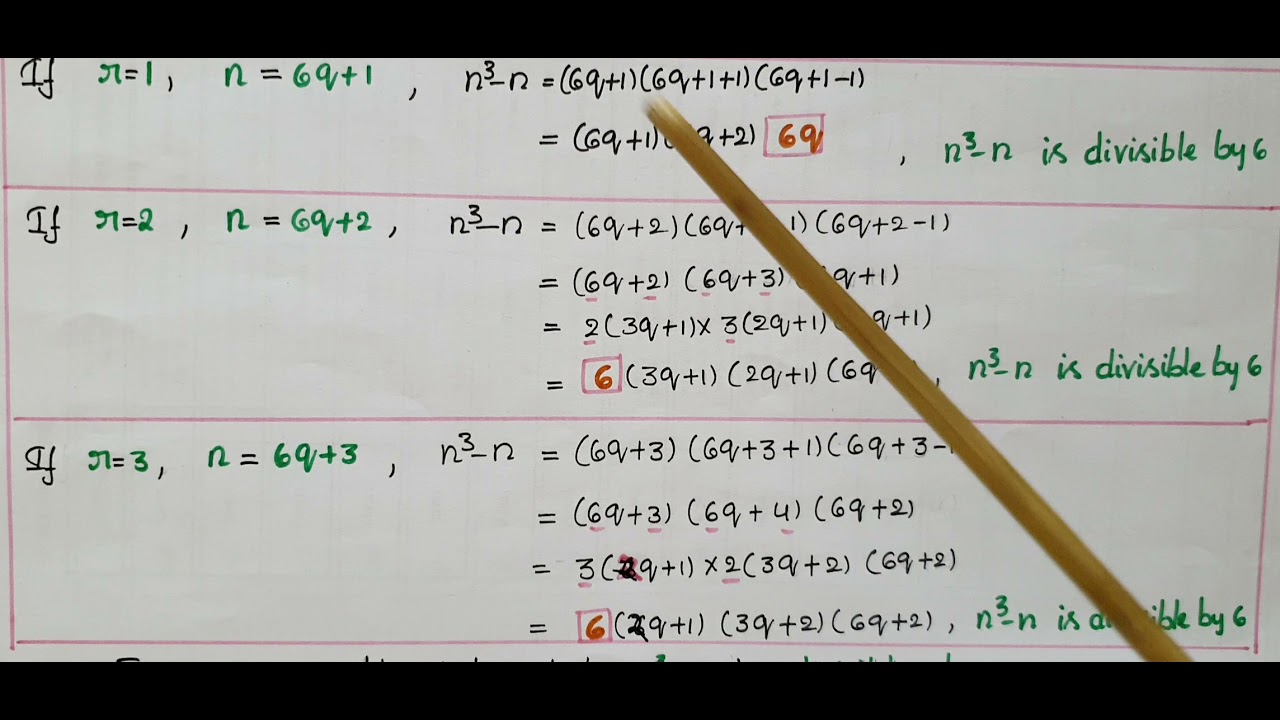 If r=1, n = 6q+1, n³-n = (6q+1)(6q+1+1)(6q+1-1)
= (6q+1) q+2) 6q , n³-n is divisible by 6
If r=2, n = 6q+2, n³-n = (6q+2)(6q+ 1)(6q+2-1)
= (6q+2) (6q+3) q+1)
= 2(3q+1)× 3(2q+1) q+1)
= 6 (3q+1) (2q+1) (6q , n³-n is divisible by 6
If r=3, n = 6q+3, n³-n = (6q+3) (6q+3+1)(6q+3-
= (6q+3) (6q+4) (6q+2)
= 3(2q+1) × 2(3q+2) (6q+2)
= 6 (2q+1) (3q+2) (6q+2), n³-n is by 6